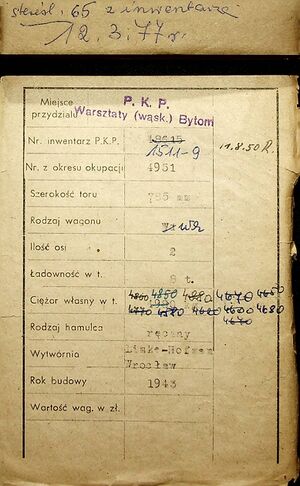 z inwentarza
12. 3. 77 r.
Miejsce przydziału P. K. P.
Warsztaty (wąsk.) Bytom
Nr. inwentarz P.K.P.
1511-9 11.8.50 R.
Nr. z okresu okupacji 4951
Szerokość toru 785 mm
Rodzaj wagonu
Ilość osi 2
Ładowność w t. 8 t.
Ciężar własny w t. 4860 4850 4880 4670 4650
4770 4580 4620 4600 4680
4630
Rodzaj hamulca ręczny
Wytwórnia Linke-Hofman
Wrocław
Rok budowy 1943
Wartość wag. w zł.